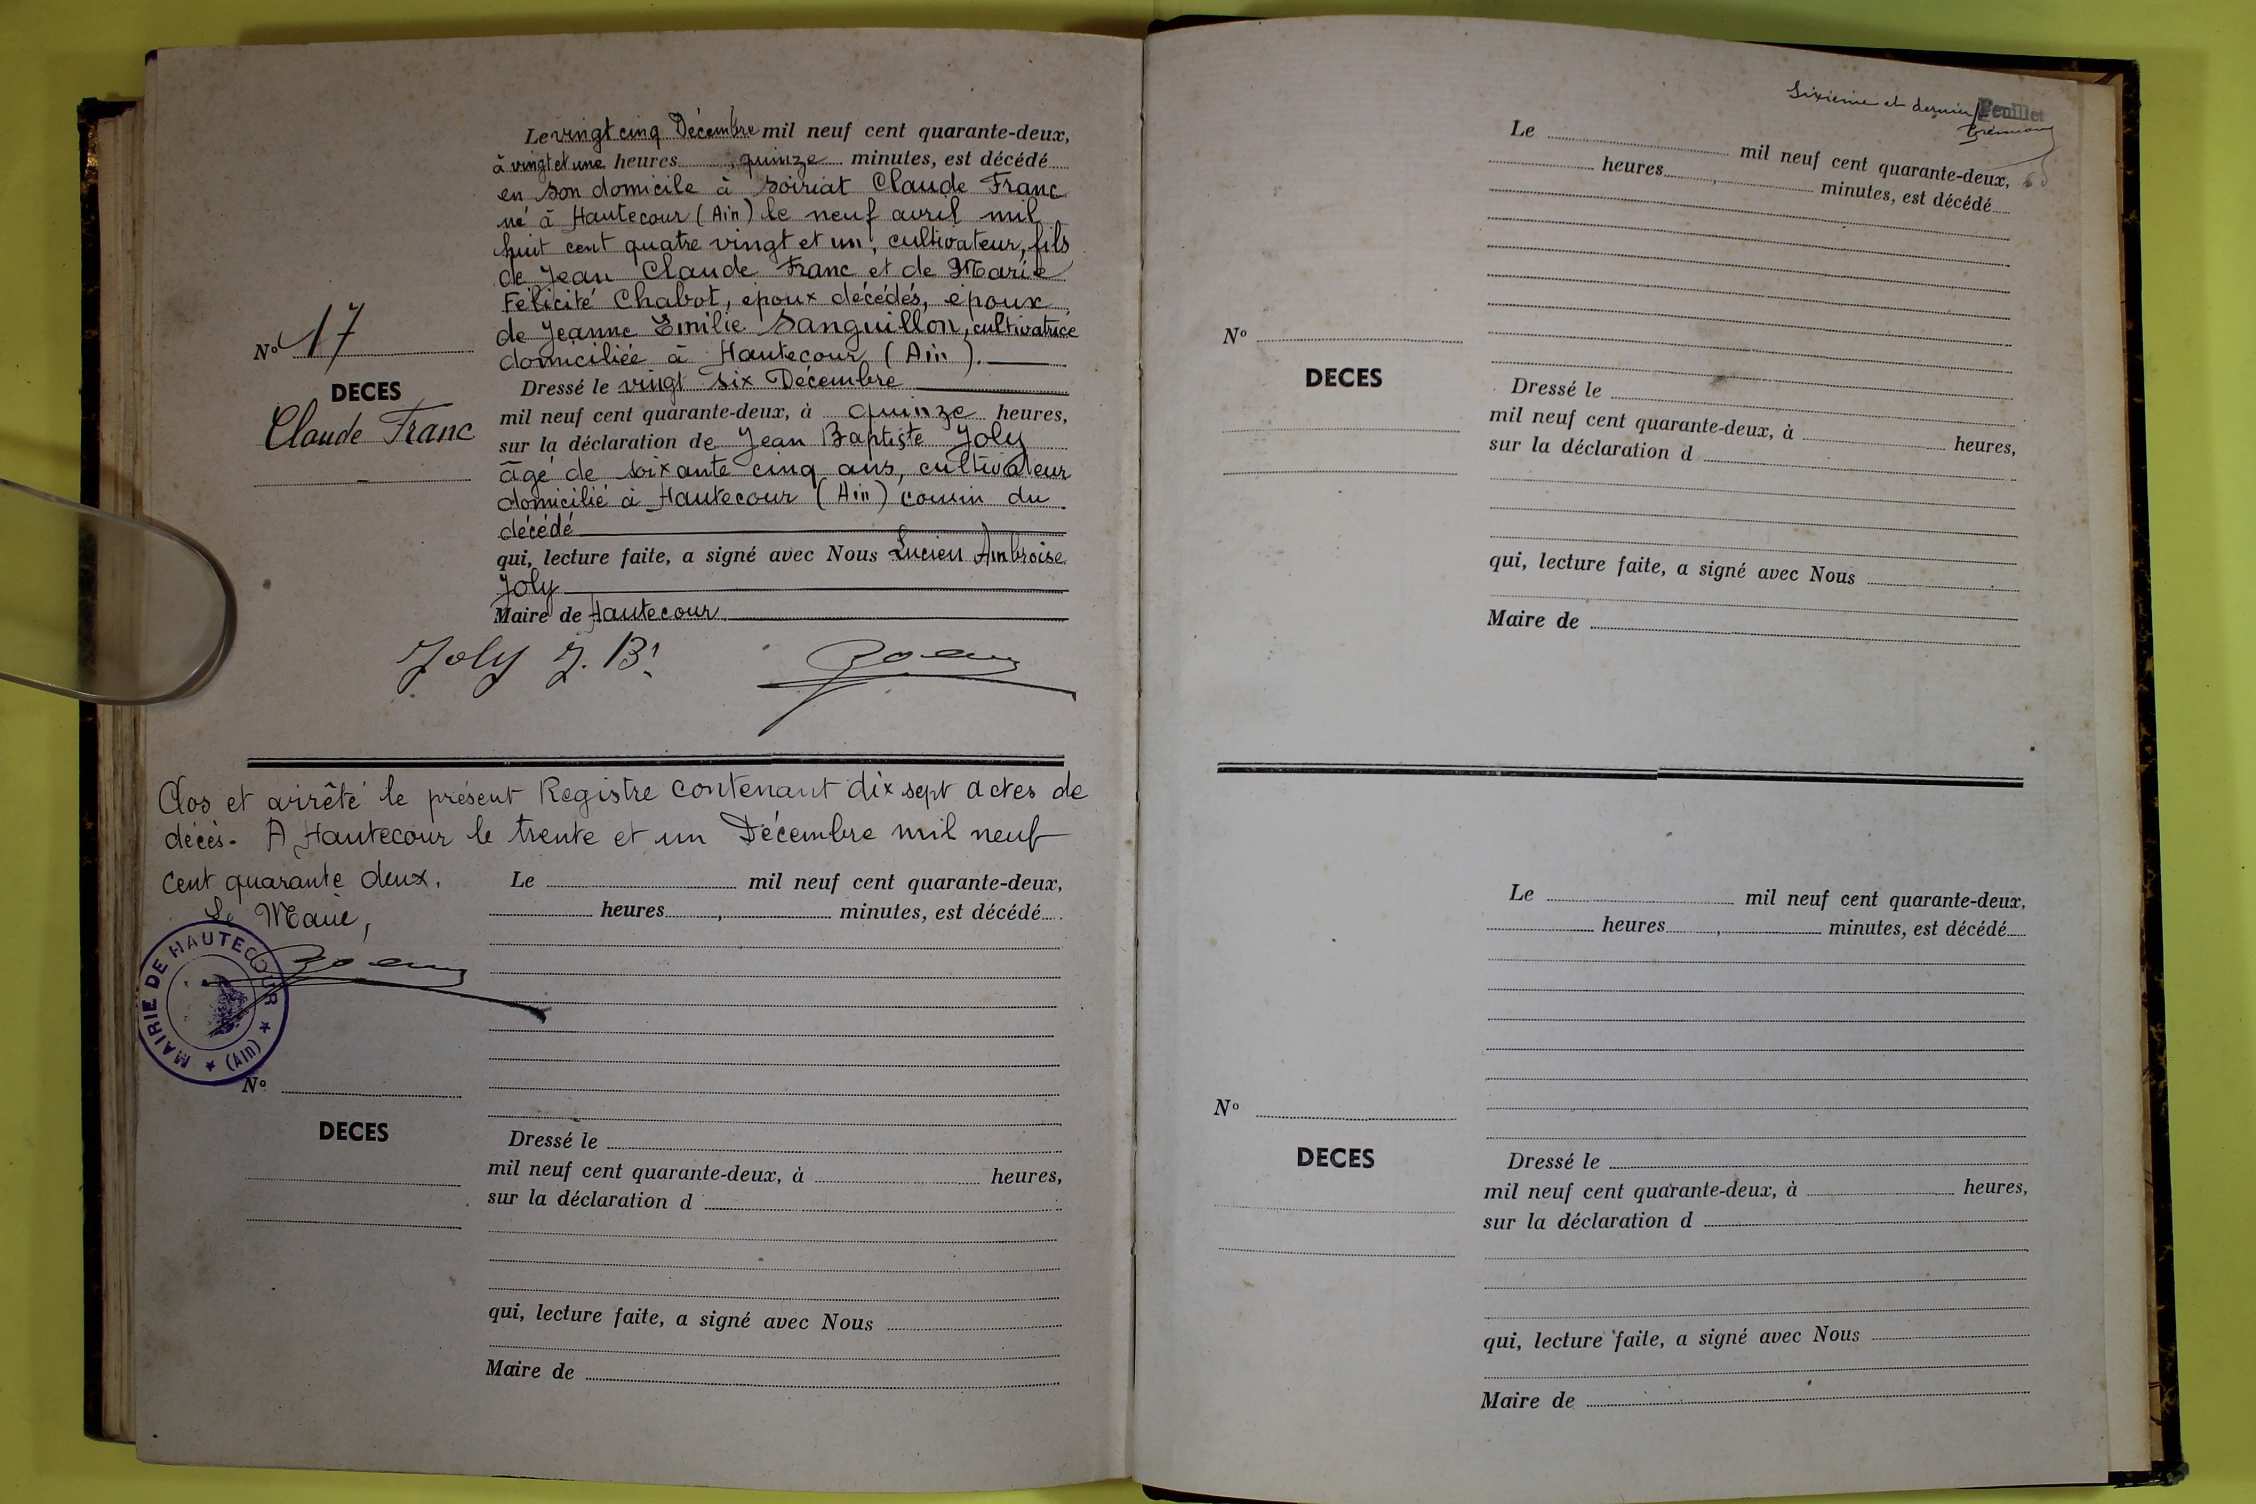 Le vingt cinq Décembre mil neuf cent quarante-deux,
à vingt et une heures, quinze minutes, est décédé
en son domicile à Soiriat Claude Franc
né à Hautecour (Ain) le neuf avril mil
huit cent quatre vingt et un, cultivateur, fils
de Jean Claude Franc et de Marie
Félicité Chabot, époux décédés, époux
de Jeanne Emilie Sanguillon, cultivatrice
domiciliée à Hautecour (Ain).
Dressé le vingt six Décembre
mil neuf cent quarante-deux, à quinze heures,
sur la déclaration de Jean Baptiste Joly
âgé de soixante cinq ans, cultivateur
domicilié à Hautecour (Ain) cousin du
décédé
qui, lecture faite, a signé avec Nous Lucien Ambroise
Joly
Maire de Hautecour
Nº 17
DECES
Claude Franc
Joly J. Bᵗ
Clos et arrêté le présent Registre contenant dix sept actes de
décès. A Hautecour le trente et un Décembre mil neuf
cent quarante deux.
Le Maire,
MAIRIE DE HAUTECOUR
★ (Ain) ★
Le mil neuf cent quarante-deux,
heures, minutes, est décédé
Nº
DECES
Dressé le
mil neuf cent quarante-deux, à heures,
sur la déclaration d
qui, lecture faite, a signé avec Nous
Maire de
Sixième et dernier Feuillet
Le mil neuf cent quarante-deux,
heures, minutes, est décédé
Nº
DECES
Dressé le
mil neuf cent quarante-deux, à heures,
sur la déclaration d
qui, lecture faite, a signé avec Nous
Maire de
Le mil neuf cent quarante-deux,
heures, minutes, est décédé
Nº
DECES
Dressé le
mil neuf cent quarante-deux, à heures,
sur la déclaration d
qui, lecture faite, a signé avec Nous
Maire de